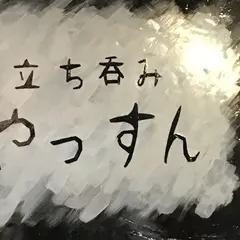 立ち呑み
やっすん